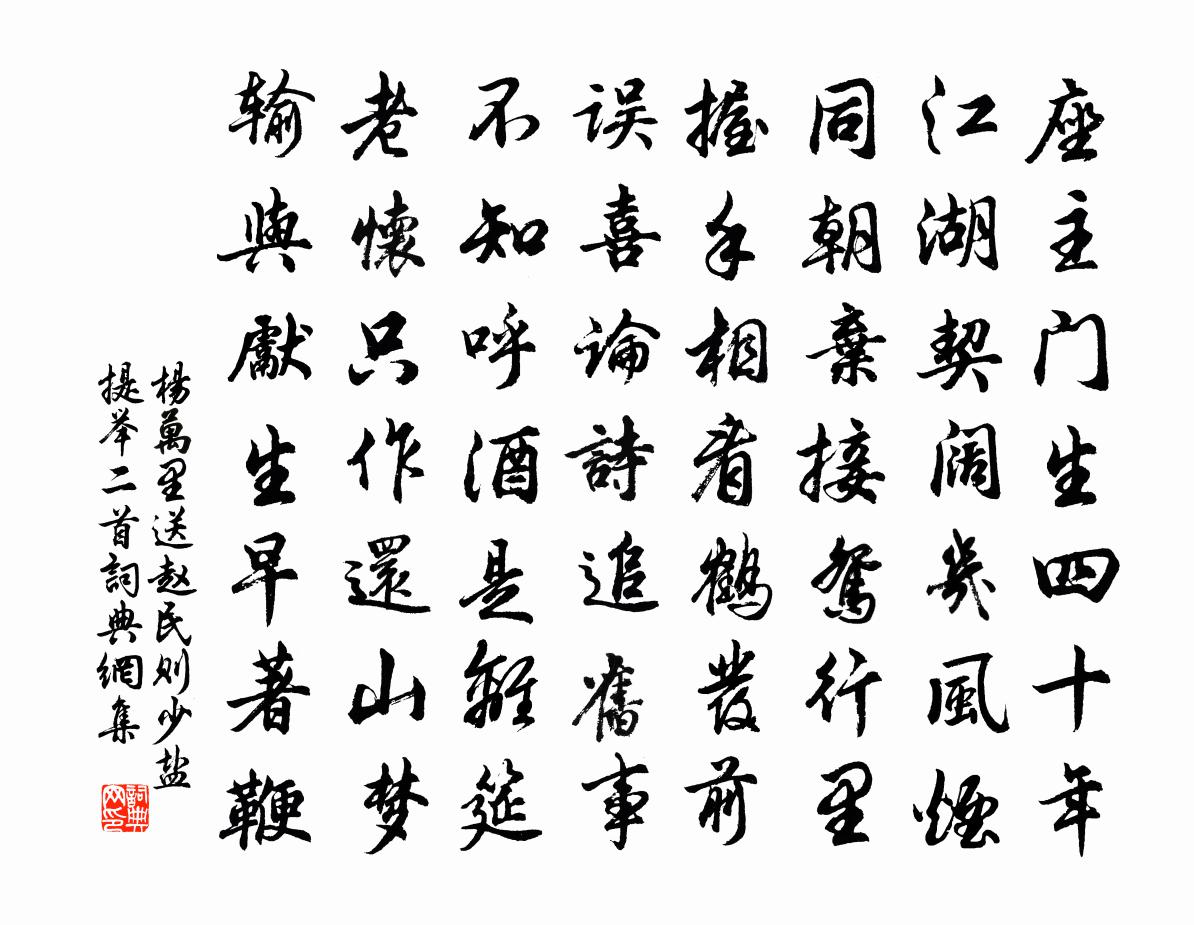 座主门生四十年
江湖契阔幾風煙
同朝棄接鴛行里
握手相看鶴發前
误喜論詩追舊事
不知呼酒是離筵
老懷只作還山梦
输與獻生早著鞭
楊萬里送赵民则少盐
提举二首詞典網集
詞典
网印